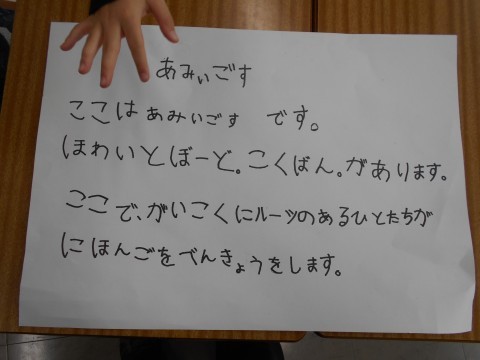 あみぃごす
ここは あみぃごす です。
ほわいとぼーど。こくばん。があります。
ここで、がいこくにルーツのあるひとたちが
にほんごをべんきょうをします。